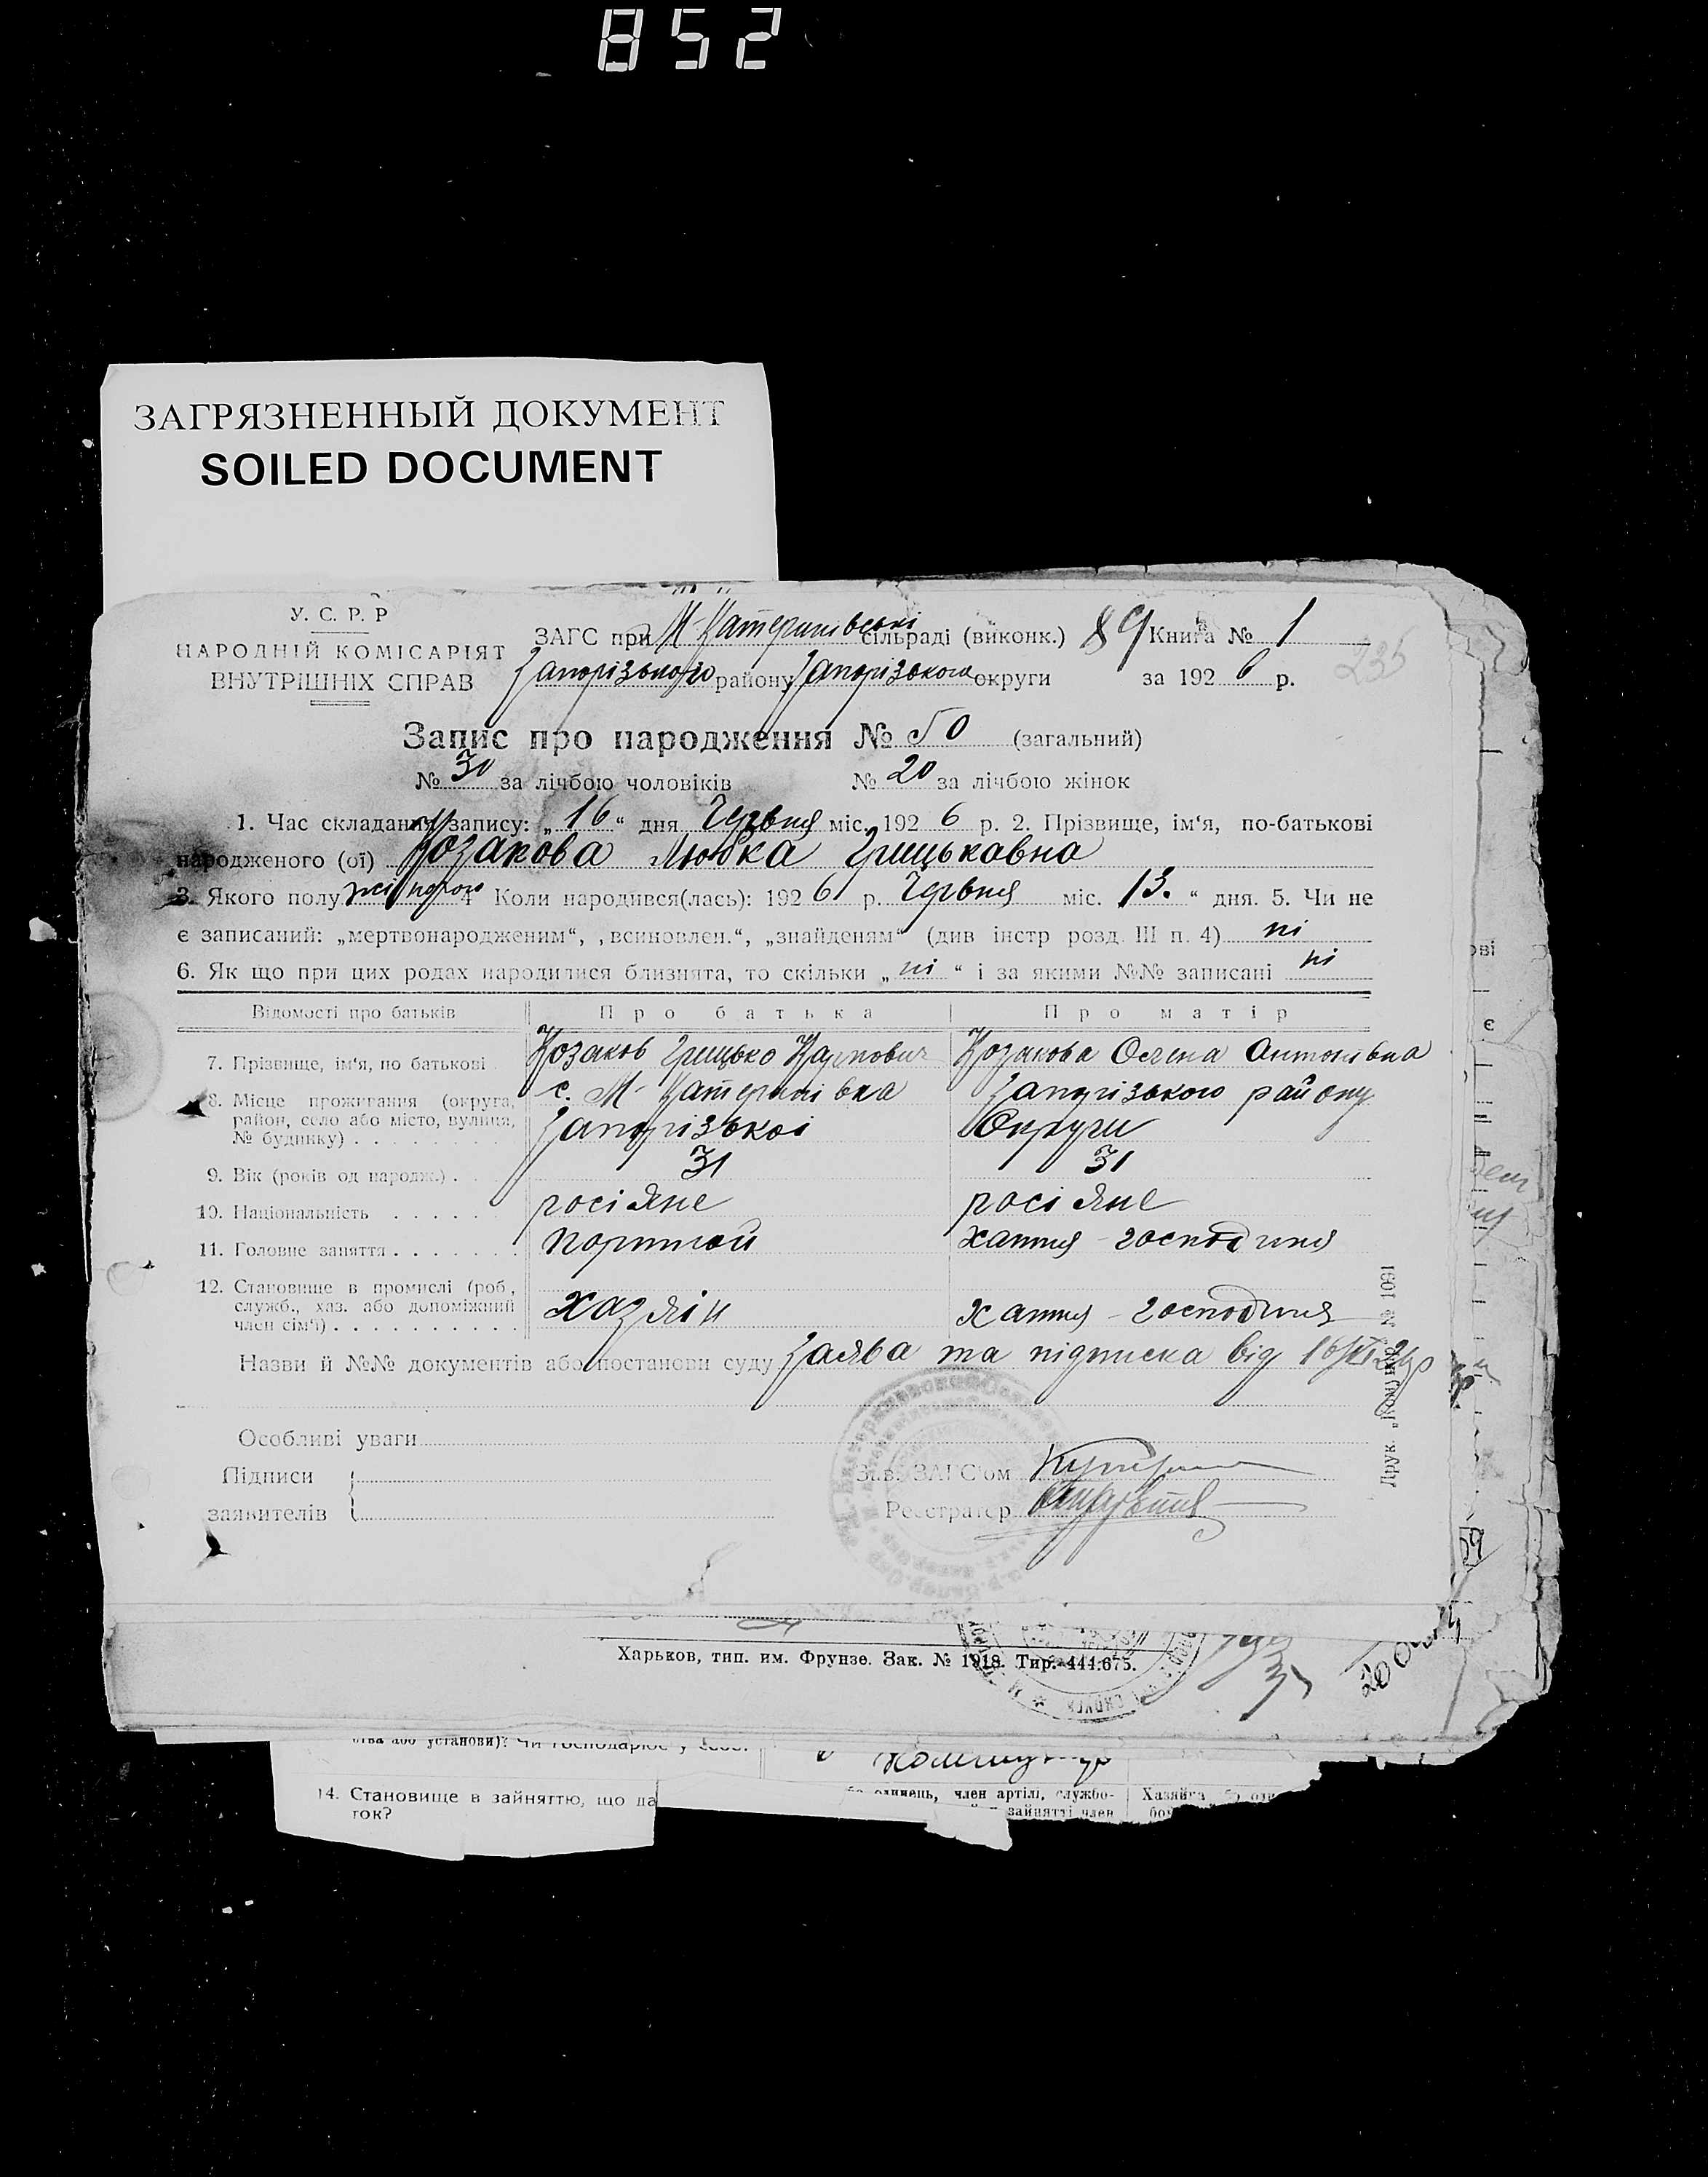 852
ЗАГРЯЗНЕННЫЙ ДОКУМЕНТ
SOILED DOCUMENT
У. С. Р. Р
НАРОДНІЙ КОМІСАРІЯТ
ВНУТРІШНІХ СПРАВ
ЗАГС при М-Катеринівські сільраді (виконк.) 89 Книга № 1
Запорізького району Запорізького округи за 1926 р. 235
Запис про народження № 50 (загальний)
№ 30 за лічбою чоловіків № 20 за лічбою жінок
1. Час складання запису: „16“ дня Червня міс. 1926 р. 2. Прізвище, ім‘я, по-батькові
народженого (ої) Козакова Любка Грицьковна
3. Якого полу 4 Коли народився(лась): 1926 р. Червня міс. 13. “ дня. 5. Чи не
є записаний: „мертвонародженим“, „всиновлен.“, „знайденям“ (див інстр розд. III п. 4) ні
6. Як що при цих родах народилися близнята, то скільки „ні“ і за якими №№ записані ні
Відомості про батьків Про батька Про матір
7. Прізвище, ім‘я, по батькові Козаков Грицько Карпович Козакова Олена Антонівна
8. Місце проживання (округа, район, село або місто, вулиця, № будинку) с. М-Катеринівка Запорізького району
Запорізькоі Округи
9. Вік (років од народж.) 31 31
10. Національність росіяне росіяне
11. Головне заняття портной хатня-господиня
12. Становище в промислі (роб., служб., хаз. або допоміжний член сім‘ї) хазяін хатня-господиня
Назви й №№ документів або постанови суду Заява та підписка від 16/VI 26 р
Особливі уваги
Підписи
заявителів
Зав. ЗАГС‘ом
Реєстратор
Друк. № 1091
59
Харьков, тип. им. Фрунзе. Зак. № 1918. Тир. 444.675.
ства або установи)? Чи господарює у
14. Становище в зайняттю, що да
ток?
член артілі, службо-
зайнятті член